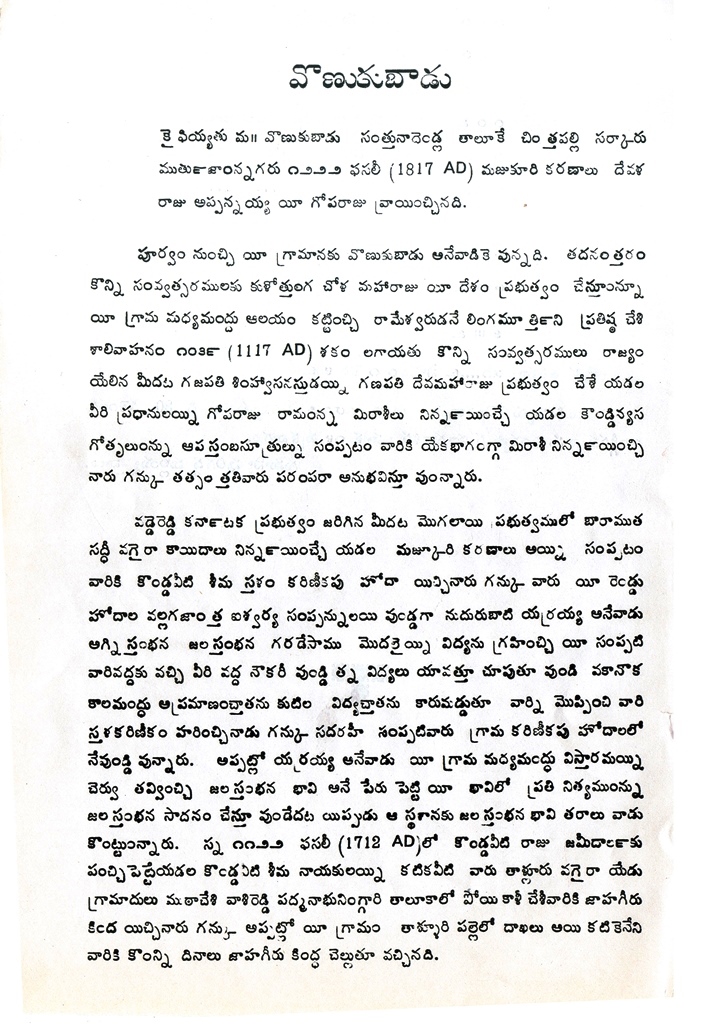 వొణుకుబాడు
కై ఫియ్యతు మ॥ వొణుకుబాడు సంతునారెండ్ల తాలూకే చింత్తపల్లి సర్కారు
ముతు౯జాంన్నగరు ౧౨౨౨ ఫసలీ (1817 AD) మజుకూరి కరణాలు దేవళ
రాజు అప్పన్నయ్య యీ గోపరాజు వ్రాయించ్చినది.
పూర్వం నుంచ్చి యీ గ్రామానకు వొణుకుబాడు అనేవాడికె వున్నది. తదనంత్తరం
కొన్ని సంవ్వత్సరములకు కుళోత్తుంగ చోళ మహారాజు యీ దేశం ప్రభుత్వం చేస్తూంన్నూ
యీ గ్రామ మధ్యమంద్దు ఆలయం కట్టించ్చి రామేశ్వరుడనే లింగమూర్తి౯ని ప్రతిష్ఠ చేశి
శాలివాహనం ౧౦౩౯ (1117 AD) శకం లగాయతు కొన్ని సంవ్వత్సరములు రాజ్యం
యేలిన మీదట గజపతి శింహ్వాసనస్తుడయ్ని గణపతి దేవమహారాజు ప్రభుత్వం చేశే యడల
వీరి ప్రధానులయ్ని గోపరాజు రామంన్న మిరాశీలు నిన్న౯యించ్చే యడల కౌండ్డిన్యస
గోత్రులుంన్ను ఆపస్తంబసూత్రుల్ను సంప్పటం వారికి యేకభాగంగ్గా మిరాశీ నిన్న౯యించ్చి
నారు గన్కు తత్సం త్తతివారు పరంపరా అనుభవిస్తూ వుంన్నారు.
వడ్డెరెడ్డి కనా౯టక ప్రభుత్వం జరిగిన మీదట మొగలాయి ప్రభుత్వములో బారాముత
సద్ధీ వగైరా కాయిదాలు నిన్న౯యించ్చే యడల మజ్కూరి కరణాలు అయ్ని సంప్పటం
వారికి కొండ్డవీటి శీమ స్తళం కరిణీకపు హోదా యిచ్చినారు గన్కు వారు యీ రెండ్డు
హోదాల వల్లగజాంత్త ఐశ్వర్య సంప్పన్నులయి వుండ్డగా నుదురుబాటి యర్రయ్య అనేవాడు
అగ్ని స్తంభన జలస్తంభన గరడేసాము మొదలైయ్ని విద్యను గ్రహించ్చి యీ సంప్పటి
వారివద్దకు వచ్చి వీరి వద్ద నౌకరీ వుండ్డి త్న విద్యలు యావత్తూ చూపుతూ వుండి వకానొక
కాలమంద్ధు అప్రమాణంచ్చాతను కుటిల విద్యచ్చాతను కారుమడ్డుతూ వార్ని మొప్పించి వారి
స్తళకరిణీకం హరించ్చినాడు గన్కు సదరహీ సంప్పటివారు గ్రామ కరిణీకపు హోదాలలో
నేవుండ్డి వున్నారు. అప్పట్లో యర్రయ్య అనేవాడు యీ గ్రామ మధ్యమంద్ధు విస్తారమయ్ని
చెర్వు తవ్వించ్చి జలస్తంభన భావి అనే పేరు పెట్టి యీ భావిలో ప్రతి నిత్యమున్ను
జలస్తంభన సాదనం చేస్తూ వుండేదట యిప్పుడు ఆ స్థళానకు జలస్తంభన భావి తరాలు వాడు
కొంట్టుంన్నారు. స్న ౧౧౨౨ ఫసలీ (1712 AD)లో కొండ్డవీటి రాజు జమీదాల౯కు
పంచ్చిపెట్టేయడల కొండ్డవీటి శీమ నాయకులయ్ని కటికవీటి వారు తాళ్లూరు వగైరా యేడు
గ్రామాదులు మఠాచేశి వాశిరెడ్డి పద్మనాభునింగ్గారి తాలూకాలో పోయికాళీ చేశీవారికి జాహగీరు
కింద యిచ్చినారు గన్కు అప్పట్లో యీ గ్రామం తాళ్ళూరి పల్లెలో దాఖలు ఆయి కటికెనేని
వారికి కొంన్ని దినాలు జాహగీరు కింద్ద చెల్లుతూ వచ్చినది.